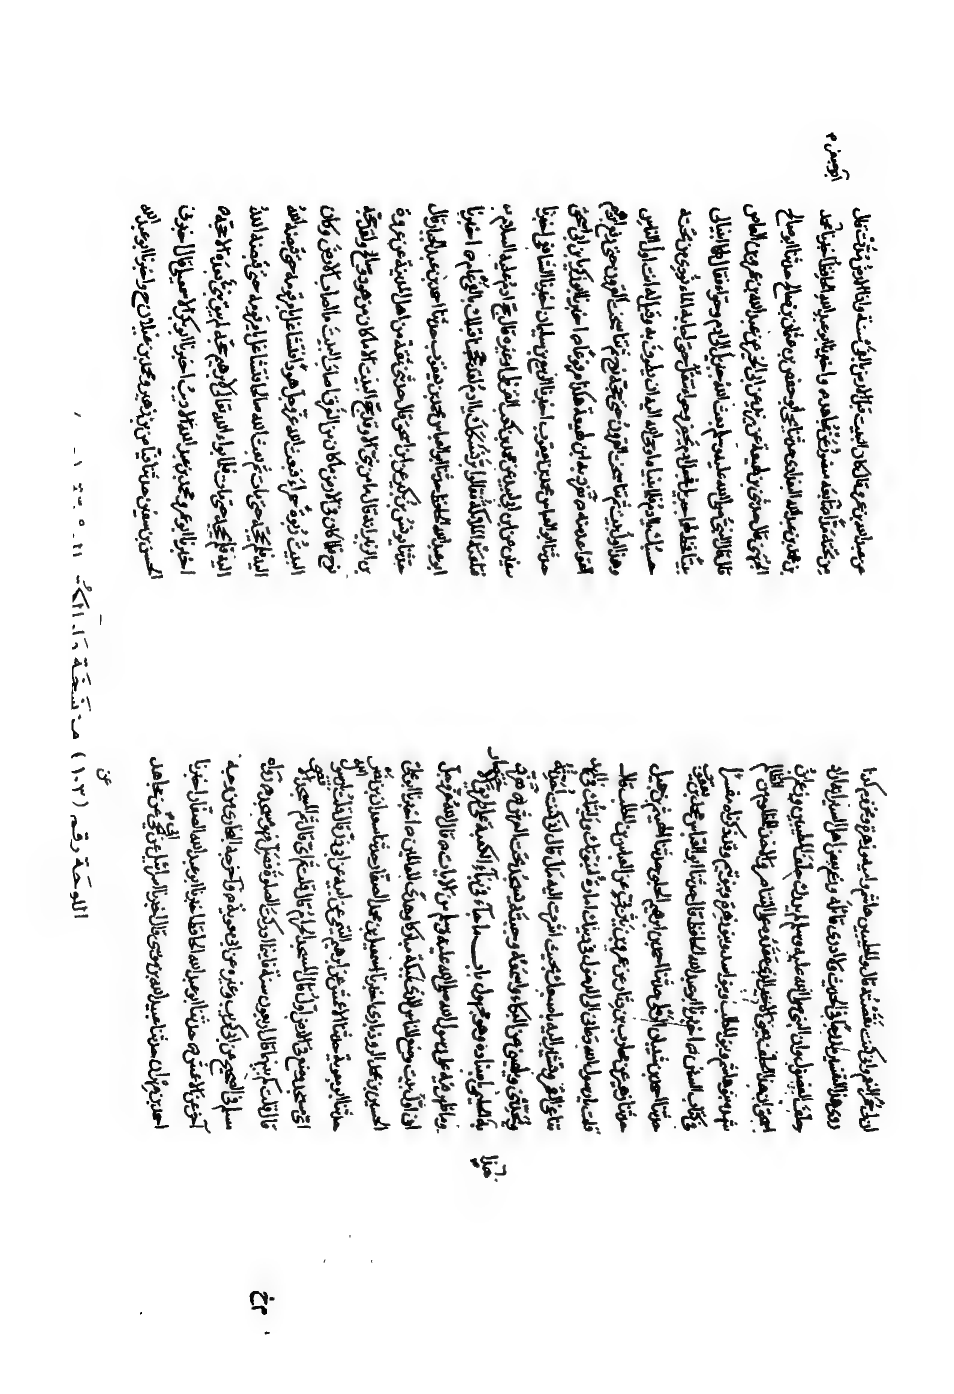 ان لي حمر النعم واني كنت نقضته قال والمطيبين هاشم وامية وزهرة ومخزوم كذا
روى هذا التفسير مدرجا في الحديث ولا ادري قائله وزعم بعض اهل السير انه اراد
حلف الفضول وان النبي صلى الله عليه وسلم لم يدرك حلف المطيبين وزعم ابن
اسحق ان هذا الحلف يعني الاخير الذي عقدوه على التناصر والاخذ للمظلوم من الظالم
شهده بنو هاشم وبنو المطلب وبنو اسد وبنو زهرة وبنو تيم وقد ذكرناه مفسرا
في كتاب السنن اخبرنا ابو عبد الله الحافظ قال حدثنا ابو العباس محمد بن يعقوب
حدثنا احمد بن شيبان الرملي حدثنا احمد بن ابرهيم الحلبي حدثنا الهيثم بن جميل
حدثنا زهير عن محارب بن دثار عن عمرو بن يثربي عن العباس بن عبد المطلب قال
قلت يا رسول الله دعاني الى الدخول في دينك امارة لنبوتك رايتك في المهد
تناغي القمر وتشير اليه باصبعك فحيث اشرت اليه مال قال اني كنت احدثه
ويحدثني ويلهيني عن البكاء واسمع وجبته حين يسجد تحت العرش تفرد به
هذا الحلبي باسناده وهو مجهول باب ما جاء في بناء الكعبة على طريق الاختصار
وما ظهر فيه على رسول الله صلى الله عليه وسلم من الايات قال الله عز وجل
ان اول بيت وضع للناس للذي ببكة مباركا وهدى للعالمين اخبرنا ابو علي
الحسين بن محمد الروذباري اخبرنا اسمعيل بن محمد الصفار حدثنا سعدان بن نصر
حدثنا ابو معوية حدثنا الاعمش عن ابرهيم التيمي عن ابيه عن ابي ذر قال قلت يا رسول الله
اي مسجد وضع في الارض اول قال المسجد الحرام قال قلت ثم اي قال ثم المسجد الاقصى
قال قلت كم بينهما قال اربعون سنة فاينما ادركتك الصلوة فصل فهو مسجد رواه
مسلم في الصحيح عن ابي كريب وغيره عن ابي معوية واخرجه البخاري من وجه
اخر عن الاعمش حدثنا ابو عبد الله الحافظ اخبرنا ابو عبد الله الصفار اخبرنا
احمد بن مهران حدثنا عبيد الله بن موسى قال اخبرنا اسرائيل عن ابي يحيى عن مجاهد
عن عبد الله بن عمرو قال كان البيت قبل الارض بالفي سنة واذا الارض مدت قال
من تحته مدا تابعه منصور عن مجاهد واخبرنا ابو عبد الله الحافظ اخبرنا احمد
بن محمد بن عبد الله البغدادي حدثنا يحيى بن عثمن بن صالح حدثنا ابو صالح
الجهني قال حدثني ابن لهيعة عن يزيد عن ابي الخير عن عبد الله بن عمرو بن العاص
قال قال النبي صلى الله عليه وسلم بعث الله جبريل الى ادم وحوا فقال لهما ابنيا لي
بيتا فخط لهما جبريل فجعل ادم يحفر وحوا تنقل حتى اجابه الماء نودي من تحته
حسبك يا ادم فلما بنياه اوحى الله اليه ان يطوف به وقيل له انت اول الناس
وهذا اول بيت ثم تناسخت القرون حتى حجه نوح ثم تناسخت القرون حتى رفع ابرهيم
القواعد منه تفرد به ابن لهيعة هكذا مرفوعا اخبرنا ابو زكريا بن ابي اسحق
حدثنا ابو العباس محمد بن يعقوب اخبرنا الربيع بن سليمان اخبرنا الشافعي اخبرنا
سفين عن ابن ابي لبيد عن محمد بن كعب القرظي او غيره قال حج ادم عليه السلام
فلقيته الملائكة فقالوا بر نسكك يا ادم لقد حججنا قبلك بالفي عام اخبرنا
ابو عبد الله الحافظ حدثنا ابو العباس محمد بن يعقوب حدثنا احمد بن عبد الجبار قال
حدثنا يونس بن بكير عن ابن اسحق قال حدثني ثقة من اهل المدينة عن عروة
بن الزبير انه قال ما من نبي الا وقد حج البيت الا ما كان من هود وصالح ولقد حجه
نوح فلما كان في الارض ما كان من الغرق اصاب البيت ما اصاب الارض وكان
البيت ربوة حمراء فبعث الله عز وجل هودا فتشاغل بامر قومه حتى قبضه الله
اليه فلم يحجه حتى مات ثم بعث الله صالحا فتشاغل بامر قومه حتى قبضه الله
اليه فلم يحجه حتى مات فلما بوا الله تعالى لابرهيم حجه لم يبق نبي بعده الا حجه
اخبرنا ابو عمرو محمد بن عبد الله الاديب اخبرنا ابو بكر الاسمعيلي قال اخبرني
الحسن بن سفين حدثنا فياض بن زهير ومحمود بن غيلان ح واخبرنا ابو عبد الله
اللوحة رقم (١٠٣) من نسخة